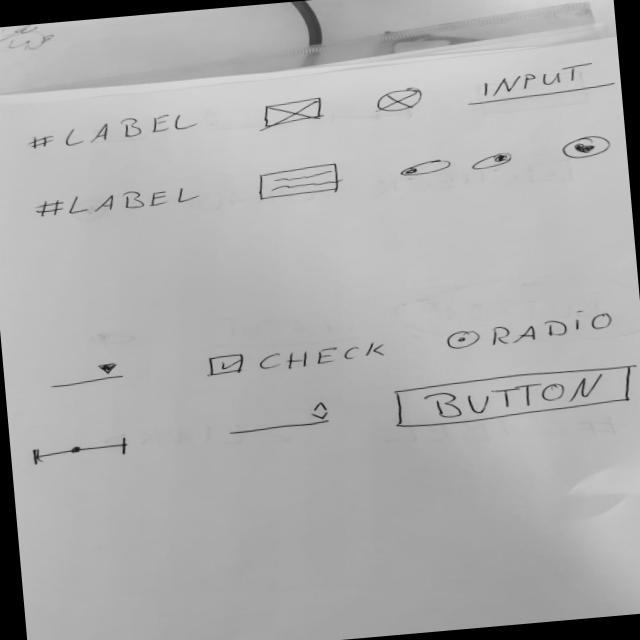 #LABEL
INPUT
#LABEL
CHECK
RADIO
BUTTON